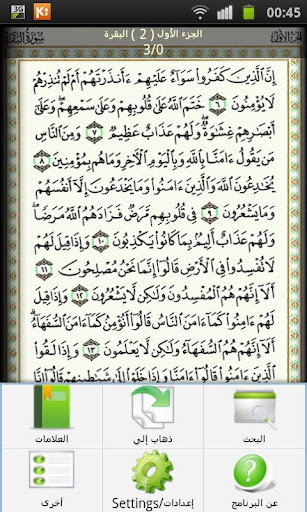 3G K 00:45
الجزء الأول ( 2 ) البقرة
3/0
سورة البقرة
الجزء الأول
إِنَّ ٱلَّذِينَ كَفَرُوا۟ سَوَآءٌ عَلَيْهِمْ ءَأَنذَرْتَهُمْ أَمْ لَمْ تُنذِرْهُمْ
لَا يُؤْمِنُونَ ٦ خَتَمَ ٱللَّهُ عَلَىٰ قُلُوبِهِمْ وَعَلَىٰ سَمْعِهِمْ ۖ وَعَلَىٰٓ
أَبْصَـٰرِهِمْ غِشَـٰوَةٌ ۖ وَلَهُمْ عَذَابٌ عَظِيمٌ ٧ وَمِنَ ٱلنَّاسِ
مَن يَقُولُ ءَامَنَّا بِٱللَّهِ وَبِٱلْيَوْمِ ٱلْـَٔاخِرِ وَمَا هُم بِمُؤْمِنِينَ ٨
يُخَـٰدِعُونَ ٱللَّهَ وَٱلَّذِينَ ءَامَنُوا۟ وَمَا يَخْدَعُونَ إِلَّآ أَنفُسَهُمْ
وَمَا يَشْعُرُونَ ٩ فِى قُلُوبِهِم مَّرَضٌ فَزَادَهُمُ ٱللَّهُ مَرَضًا ۖ
وَلَهُمْ عَذَابٌ أَلِيمٌۢ بِمَا كَانُوا۟ يَكْذِبُونَ ١٠ وَإِذَا قِيلَ لَهُمْ
لَا تُفْسِدُوا۟ فِى ٱلْأَرْضِ قَالُوٓا۟ إِنَّمَا نَحْنُ مُصْلِحُونَ ١١
أَلَآ إِنَّهُمْ هُمُ ٱلْمُفْسِدُونَ وَلَـٰكِن لَّا يَشْعُرُونَ ١٢ وَإِذَا قِيلَ
لَهُمْ ءَامِنُوا۟ كَمَآ ءَامَنَ ٱلنَّاسُ قَالُوٓا۟ أَنُؤْمِنُ كَمَآ ءَامَنَ ٱلسُّفَهَآءُ ۗ
أَلَآ إِنَّهُمْ هُمُ ٱلسُّفَهَآءُ وَلَـٰكِن لَّا يَعْلَمُونَ ١٣ وَإِذَا لَقُوا۟
ٱلَّذِينَ ءَامَنُوا۟ قَالُوٓا۟ ءَامَنَّا وَإِذَا خَلَوْا۟ إِلَىٰ شَيَـٰطِينِهِمْ
البحث
ذهاب إلى
العلامات
عن البرنامج
Settings/إعدادات
أخرى